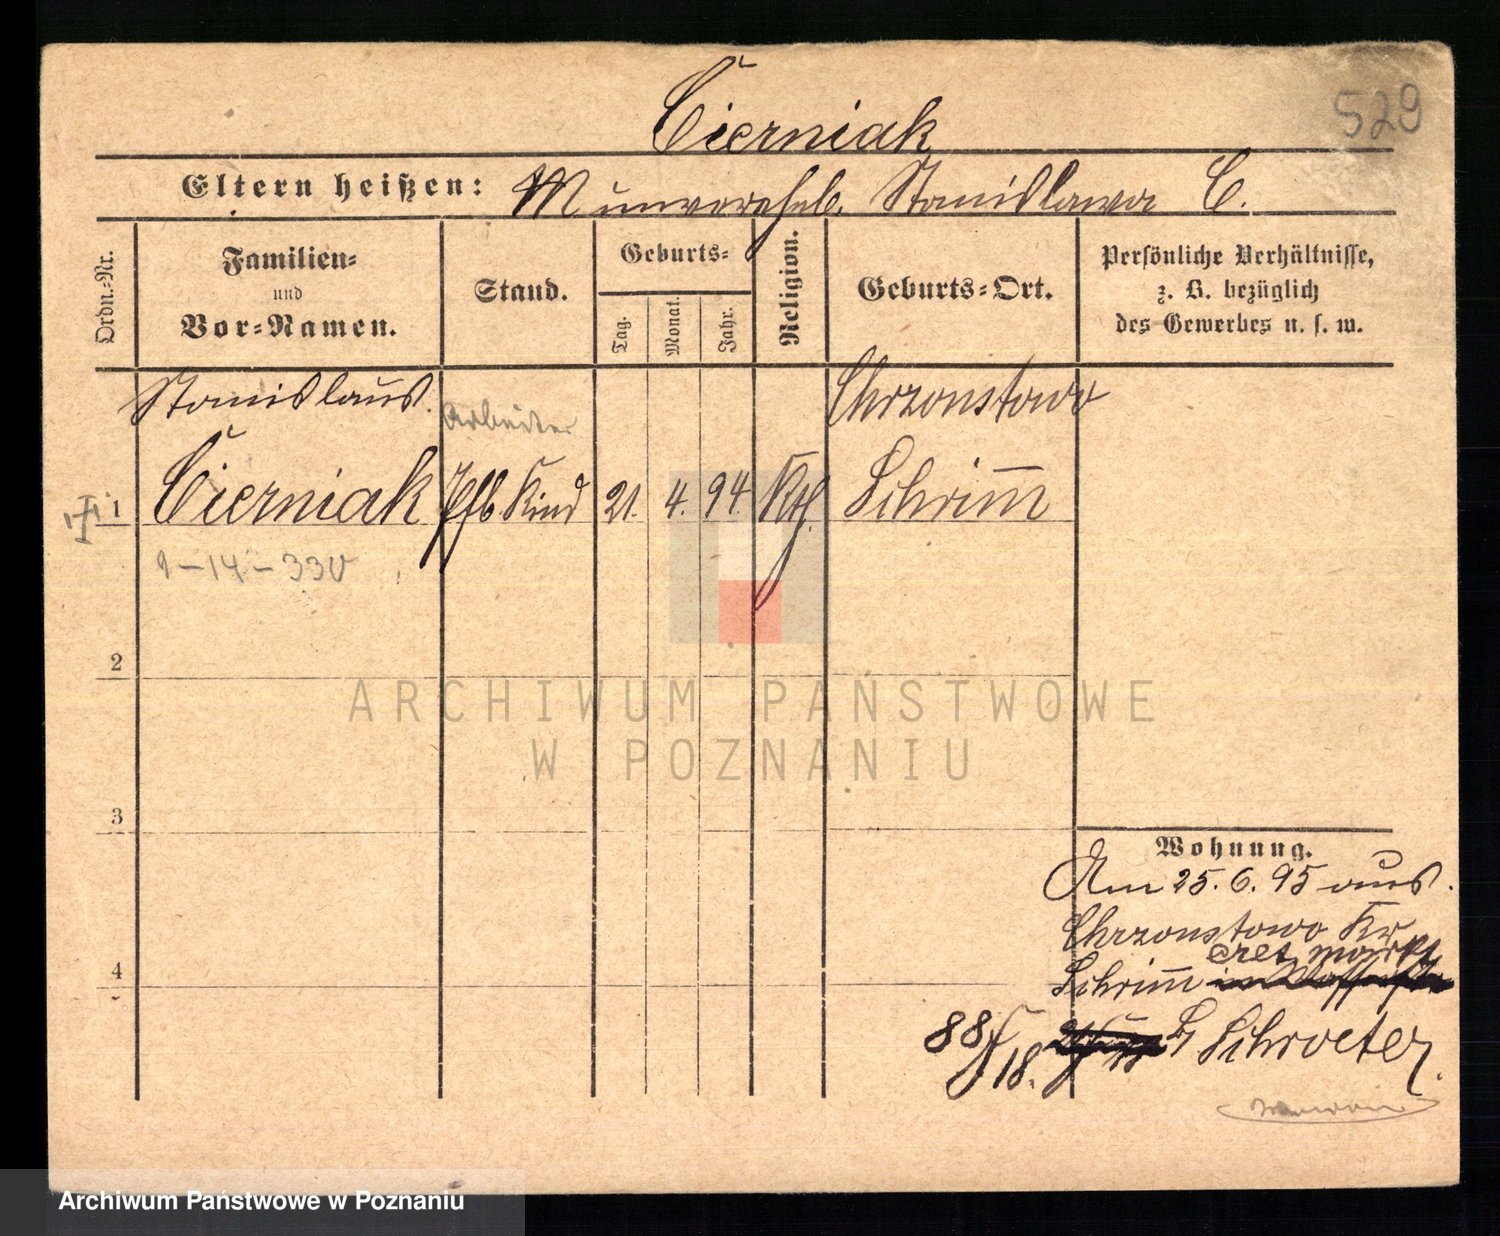 529
Cierniak
Eltern heißen: M unvereh­el. Stanislawa C.
Ordn.-Nr.
Familien-
und
Vor-Namen.
Stand.
Geburts-
Tag.
Monat.
Jahr.
Religion.
Geburts-Ort.
Persönliche Verhältnisse,
z. B. bezüglich
des Gewerbes u. s. w.
Stanislaus
Arbeiter
Chrzonstowo
1 Cierniak Pfb. Kind 21. 4. 94. Kth. Schrim̅
1-14-330
2
ARCHIWUM PAŃSTWOWE
W POZNANIU
3
Wohnung.
Am 25. 6. 95 aus
Chrzonstowo Kr
Schrim̅
4
88
18. b/ Schroeter.
Archiwum Państwowe w Poznaniu